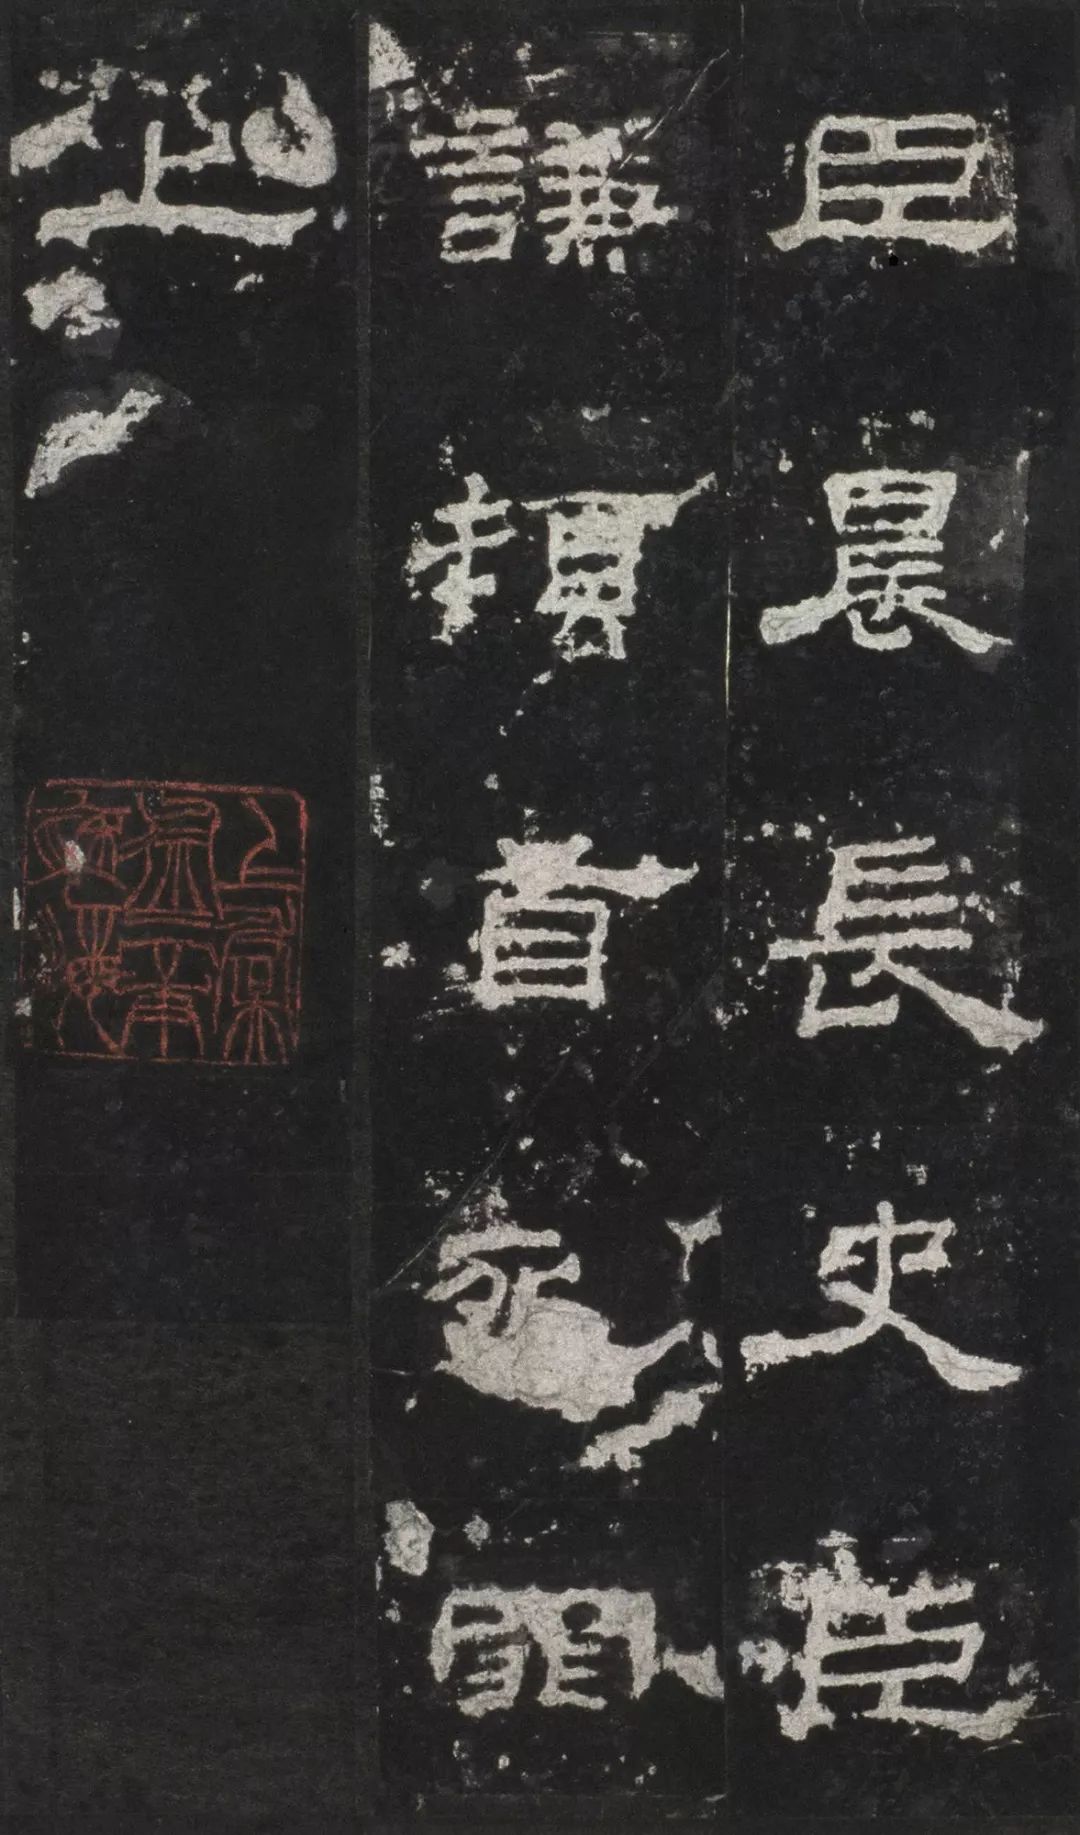 臣晨長史臣
謙頓首死罪
上